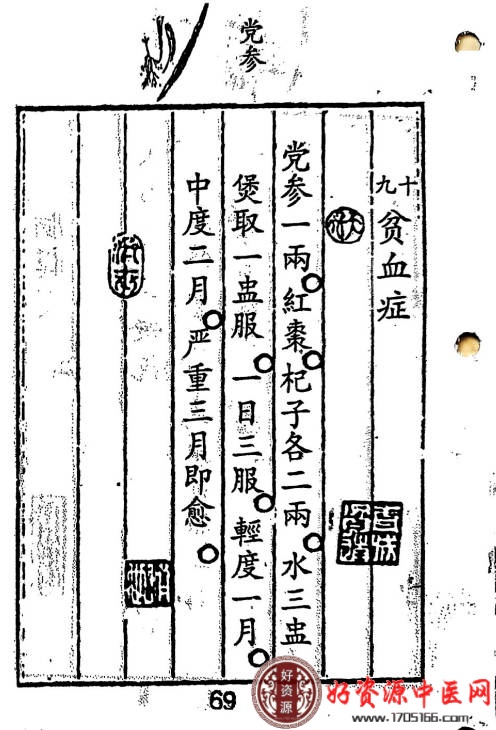 党参
十九 贫血症
党参一兩。紅棗。杞子各二兩。水三盅
煲取一盅服。一日三服。輕度一月。
中度二月。严重三月即愈。
69
好资源
好资源中医网
www.1705166.com